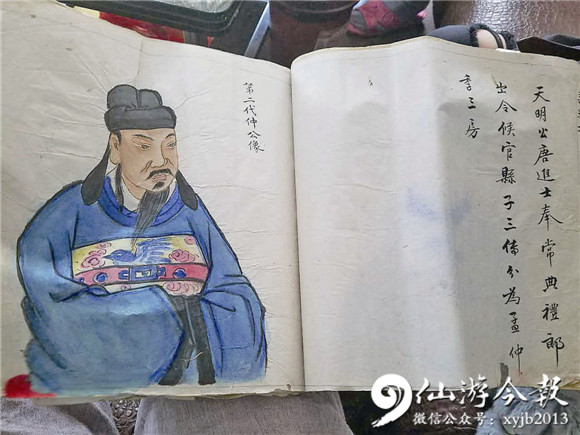 天明公唐進士奉常典禮郎
出令候官縣子三傳分為孟仲
季三房
第二代仲公像
仙游今报
微信公众号：xyjb2013